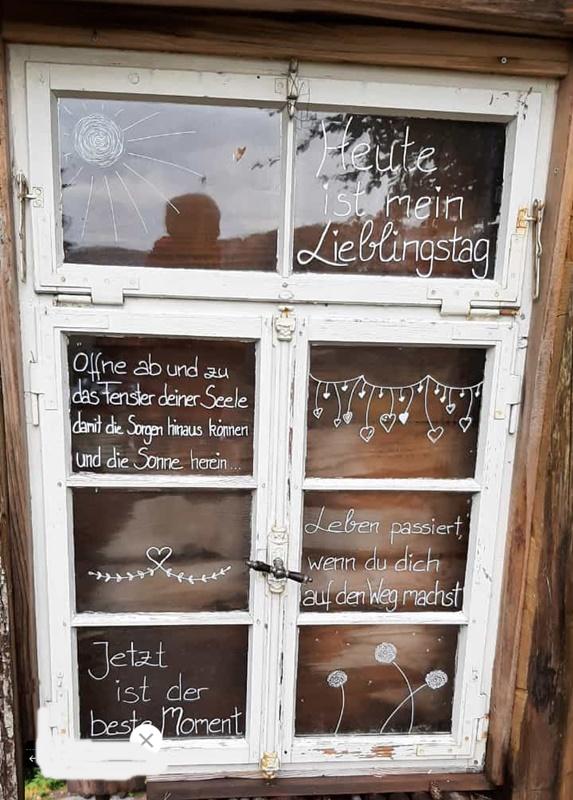 Heute
ist mein
Lieblingstag
Öffne ab und zu
das Fenster deiner Seele
damit die Sorgen hinaus können
und die Sonne herein...
Leben passiert,
wenn du dich
auf den Weg machst
Jetzt
ist der
beste Moment